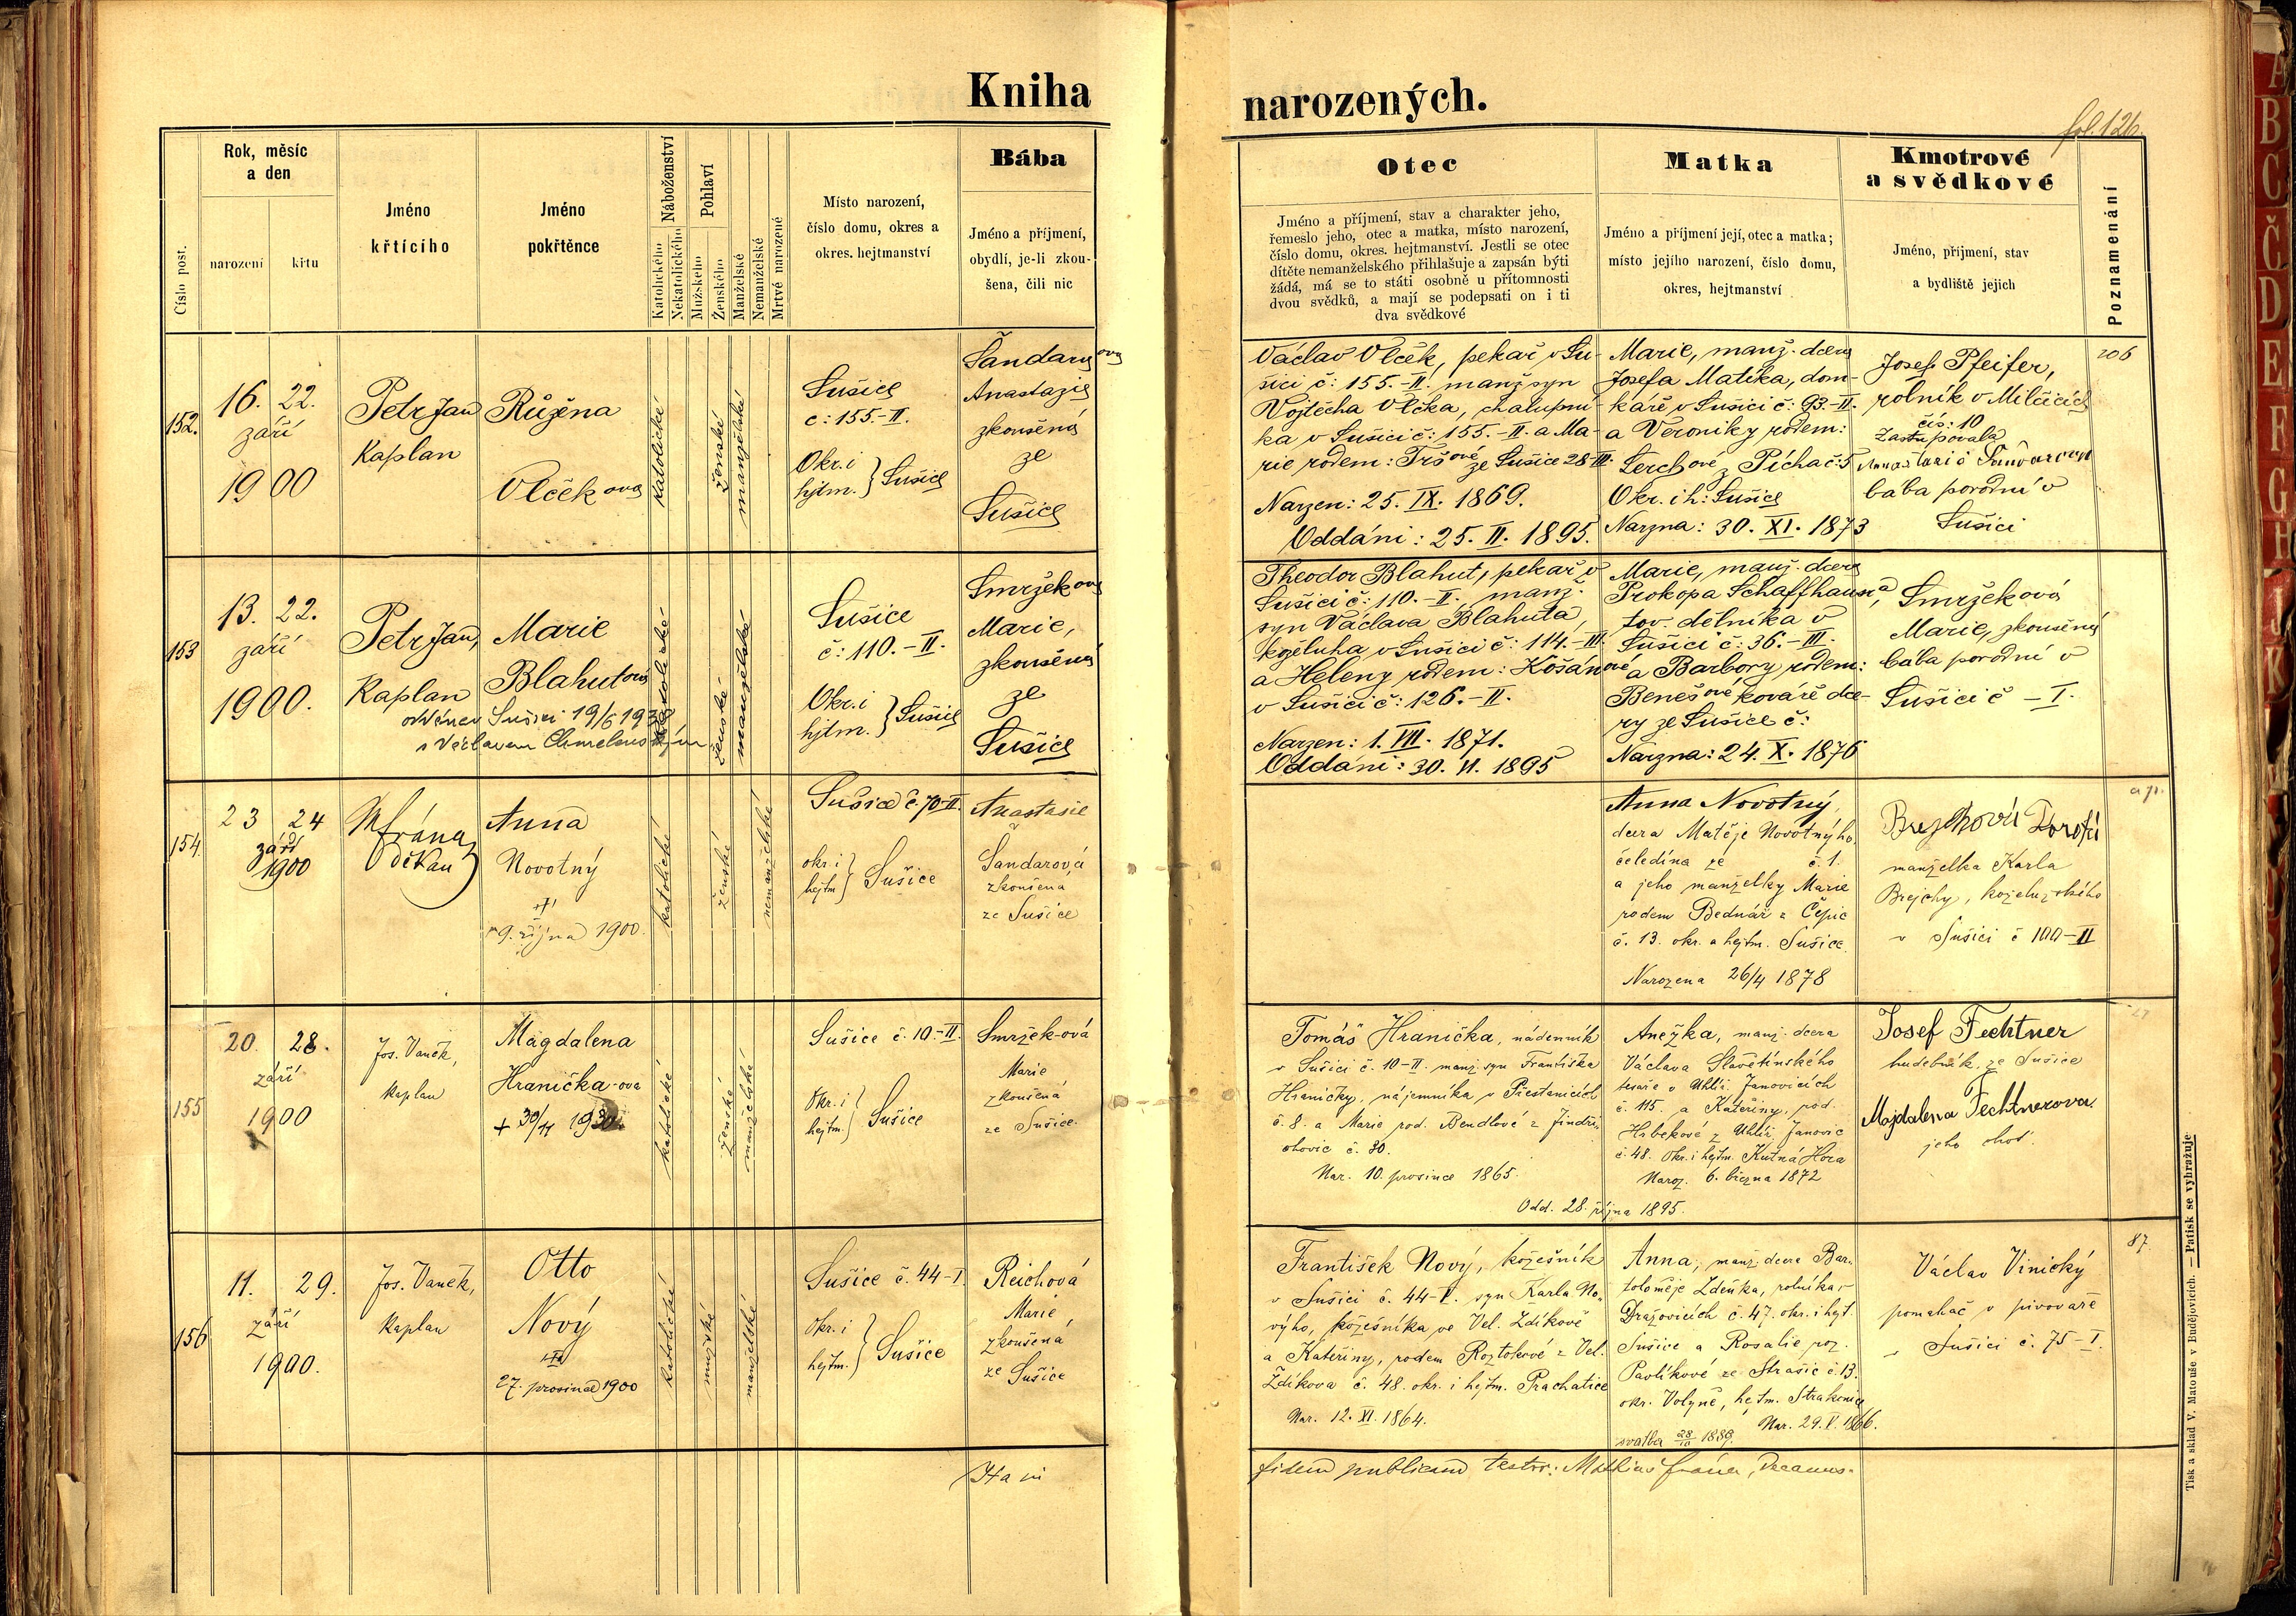 Kniha
narozených.
fol. 126.
Číslo post.
Rok, měsíc
a den
narození
křtu
Jméno
křtícího
Jméno
pokřtěnce
Náboženství
Katolického
Nekatolického
Pohlaví
Mužského
Ženského
Manželské
Nemanželské
Mrtvě narozené
Místo narození,
číslo domu, okres a
okres. hejtmanství
Bába
Jméno a příjmení,
obydlí, je-li zkou-
šena, čili nic
Otec
Jméno a příjmení, stav a charakter jeho,
řemeslo jeho, otec a matka, místo narození,
číslo domu, okres. hejtmanství. Jestli se otec
dítěte nemanželského přihlašuje a zapsán býti
žádá, má se to státi osobně u přítomnosti
dvou svědků, a mají se podepsati on i ti
dva svědkové
Matka
Jméno a příjmení její, otec a matka;
místo jejího narození, číslo domu,
okres, hejtmanství
Kmotrové
a svědkové
Jméno, příjmení, stav
a bydliště jejich
Poznamenání
152.
16. 22.
září
1900
Petr Jan
Kaplan
Růžena
Vlčekova
katolické
ženské
manželské
Sušice
č: 155.-II.
Okr. i
hjtm. } Sušice
Šandarova
Anastazie
zkoušená
ze
Sušice
Václav Vlček, pekař v Su-
šici č: 155.-II. manž. syn
Vojtěcha Vlčka, chalupní-
ka v Sušici č: 155.-II. a Ma-
rie rodem: Tršové ze Sušice 28 III.
Narzen: 25. IX. 1869.
Oddáni: 25. II. 1895.
Marie, manž. dcera
Josefa Matíka, dom-
káře v Sušici č: 93.-II.
a Veroniky rodem:
Lerchové z Pícha č: 5
Okr. i h: Sušice
Narzna: 30. XI. 1873
Josef Pfeifer,
rolník v Milčicích
čís: 10
Zastupovala
bába porodní v
Sušici
206
153
13. 22.
září
1900.
Petr Jan,
Kaplan
Marie
Blahutova
oddána v Sušici 19/6 1938
s Václavem
katolické
ženské
manželské
Sušice
č: 110.-II.
Okr. i
hjtm. } Sušice
Smržekova
Marie,
zkoušená
ze
Sušice
Theodor Blahut, pekař v
Sušici č: 110.-II., manž.
syn Václava Blahuta,
koželuha v Sušici č: 114.-III.
a Heleny rodem: Košánové
v Sušici č: 126.-II.
Narzen: 1. VII. 1871.
Oddáni: 30. VI. 1895
Marie, manž. dcera
Prokopa Schaffhausra,
tov. dělníka v
Sušici č: 36.-III.
a Barbory rodem:
Benešové, kováře dce-
ry ze Sušice č:
Narzna: 24. X. 1876
Smržeková
Marie, zkoušená
bába porodní v
Sušici č -I.
154.
23 24
září
1900
M frána
děkan
Anna
Novotný
9. října 1900.
katolické
ženské
nemanželské
Sušice č. 70-II.
okr. i
hejtm } Sušice
Anastasie
Šandarová
zkoušená
ze Sušice
Anna Novotný,
dcera Matěje Novotného
čeledína ze č. 1.
a jeho manželky Marie
rodem Bednář z Čepic
č. 13. okr. a hejtm. Sušice.
Narozena 26/4 1878
Brejchová Dorota
manželka Karla
Brejchy, koželužského
v Sušici č 100-II
155
20. 28.
září
1900
Jos. Vaněk,
kaplan
Magdalena
Hranička-ova
+ 30/11 1930
katolické
ženské
manželské
Sušice č. 10-II.
Okr. i
hejtm. } Sušice
Smržek-ová
Marie
zkoušená
ze Sušice.
Tomáš Hranička, nádenník
v Sušici č. 10-II. manž. syn Františka
Hraničky, nájemníka v Přestanicích
č. 8. a Marie rod. Bendlové z Jindři-
chovic č. 30.
Nar. 10. prosince 1865.
Odd. 28. října 1895.
Anežka, manž. dcera
Václava Slavětínského
tesaře v Uhlíř. Janovicích
č. 115. a Kateřiny, rod.
Hrbekové z Uhlíř. Janovic
č. 48. Okr. i hejtm. Kutná Hora
Naroz. 6. března 1872
Josef Fechtner
hudebník, ze Sušice
Magdalena Fechtnerova
jeho choť.
156
11. 29.
září
1900.
Jos. Vaněk,
kaplan
Otto
Nový
27. prosince 1900
katolické
mužské
manželské
Sušice č. 44-I.
Okr. i
hejtm. } Sušice
Reichová
Marie
zkoušená
ze Sušice
František Nový, kožešník
v Sušici č. 44-I. syn Karla No-
výho, kožešníka ve Vel. Zdíkově
a Kateřiny, rodem Roztokové z Vel.
Zdíkova č. 48. okr. i hejtm. Prachatice
Nar. 12. XI. 1864.
Anna, manž. dcera Bar-
toloměje Zdeňka, rolníka v
Dražovicích č. 47. okr. i hejt.
Sušice a Rosalie roz.
Pavlíkové ze Strašic č. 13.
okr. Volyně, hejtm. Strakonice
Nar. 29. V. 1866.
svatba 28/10 1889.
Václav Vinický
pomahač v pivovaře
v Sušici č. 75-I.
87.
Ita in
fidem publicam testor: Mathias frána, Decanus.
Tisk a sklad V. Matouše v Budějovicích. — Patisk se vyhražuje
A
B
C
Č
D
E
F
G
H
J
K